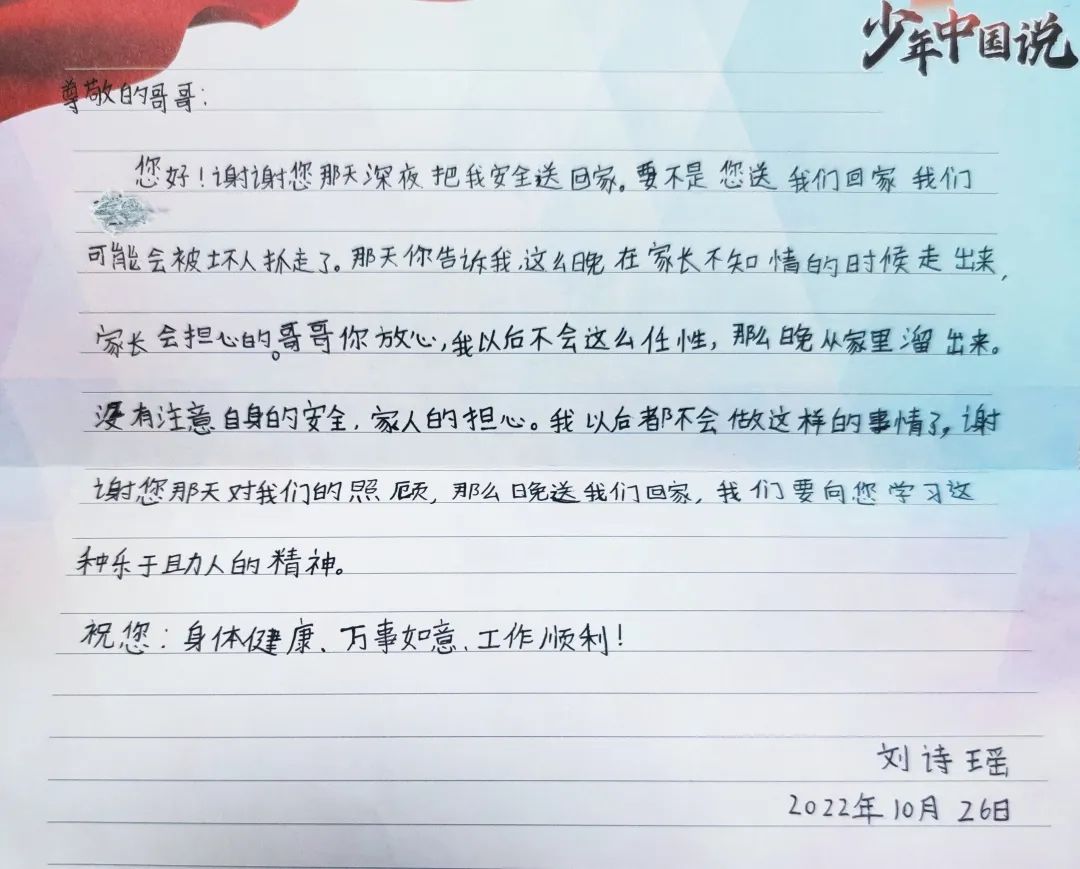 少年中国说
尊敬的哥哥：
您好！谢谢您那天深夜把我安全送回家。要不是您送我们回家我们
可能会被坏人抓走了。那天你告诉我，这么晚在家长不知情的时候走出来，
家长会担心的。哥哥你放心，我以后不会这么任性，那么晚从家里溜出来。
没有注意自身的安全，家人的担心。我以后都不会做这样的事情了，谢
谢您那天对我们的照顾，那么晚送我们回家，我们要向您学习这
种乐于助人的精神。
祝您：身体健康、万事如意、工作顺利！
刘诗瑶
2022年10月26日